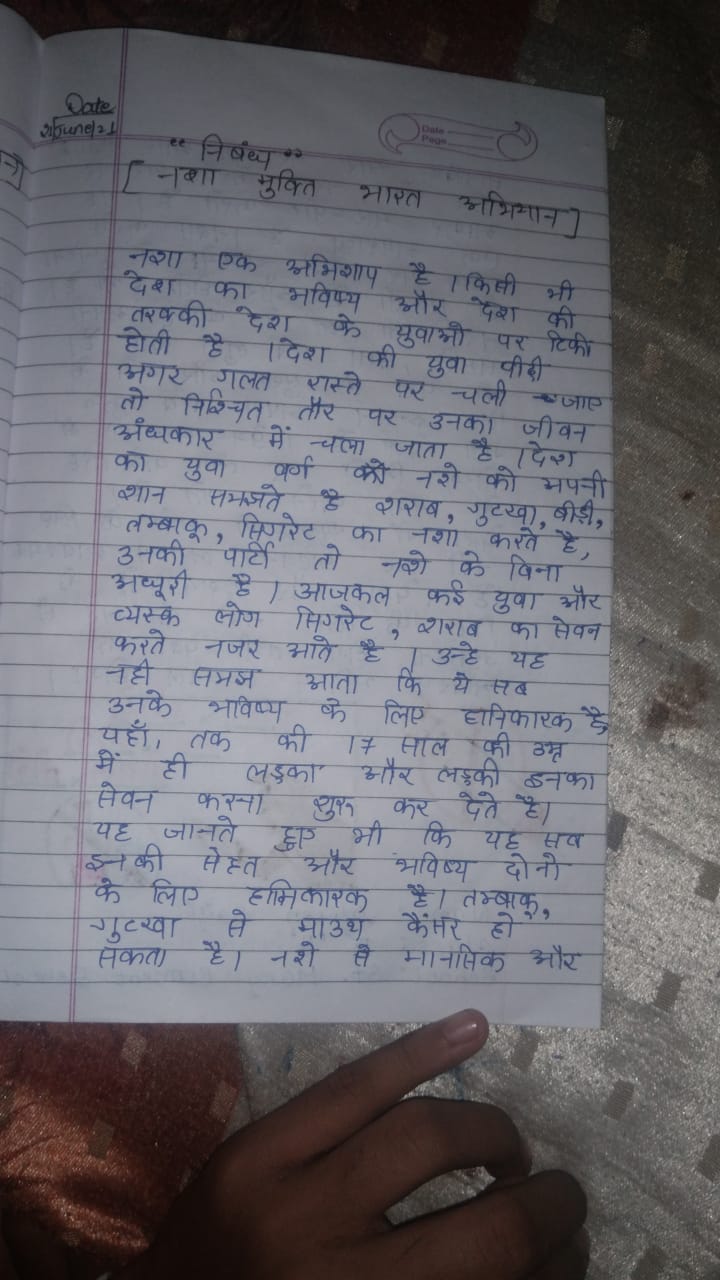 Date
21June/21
Date
Page
"निबंध"
[नशा मुक्ति भारत अभियान]
नशा एक अभिशाप है। किसी भी
देश का भविष्य और देश की
तरक्की देश के युवाओ पर टिकी
होती है। देश की युवा पीढ़ी
अगर गलत रास्ते पर चली जाए
तो निश्चित तौर पर उनका जीवन
अंधकार में चला जाता है। देश
का युवा वर्ग नशे को अपनी
शान समझते है शराब, गुटखा, बीड़ी,
तम्बाकू, सिगरेट का नशा करते है,
उनकी पार्टी तो नशे के बिना
अधूरी है। आजकल कई युवा और
व्यस्क लोग सिगरेट, शराब का सेवन
करते नजर आते है। उन्हे यह
नही समझ आता कि ये सब
उनके भविष्य के लिए हानिकारक है,
यहाँ, तक की 17 साल की उम्र
में ही लड़का और लड़की इनका
सेवन करना शुरू कर देते है।
यह जानते हुए भी कि यह सब
इनकी सेहत और भविष्य दोनो
के लिए हानिकारक है। तम्बाकू,
गुटखा से माउथ कैंसर हो
सकता है। नशे से मानसिक और